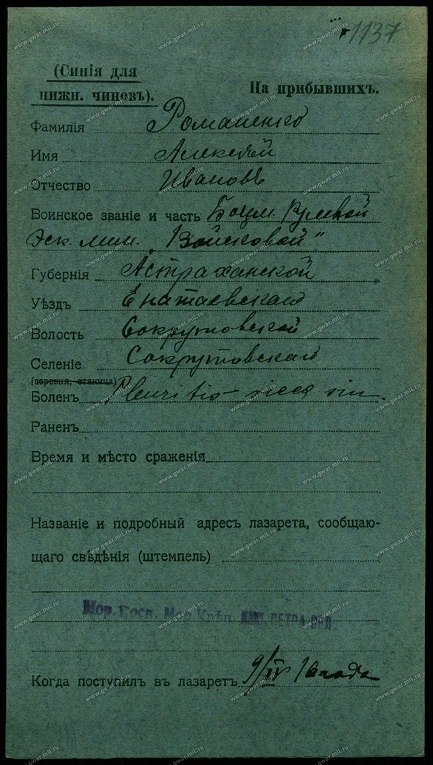 1137
(Синія для
нижн. чиновъ).
На прибывшихъ.
Фамилія Романенко
Имя Алексѣй
Отчество Ивановъ
Воинское званіе и часть Боцм. Рулевой
Эск. Мин. „Войсковой"
Губернія Астраханской
Уѣздъ Енатаевскаго
Волость Сокрутовской
Селеніе Сокрутовскаго
(деревня, станица)
Боленъ Pleuritis sicca sin.
Раненъ
Время и мѣсто сраженія
Названіе и подробный адресъ лазарета, сообщаю-
щаго свѣдѣнія (штемпель)
Мор. Госп. Мор. Крѣп. ИМП. ПЕТРА ВЕЛ.
Когда поступилъ въ лазаретъ 9/IV
www.gwar.mil.ru